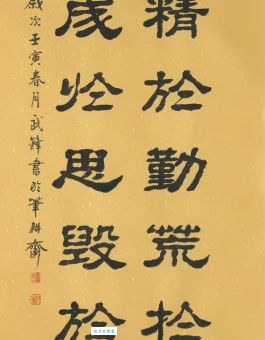 精於勤荒於
成於思毀於
歲次壬寅春月武鋒書於筆耕齋